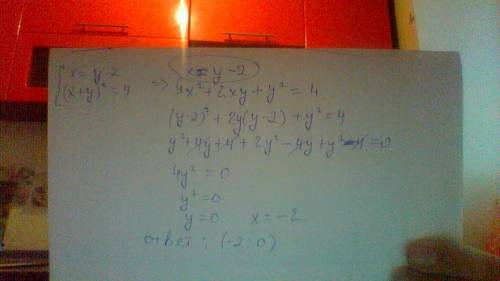 { x = y - 2
(x+y)² = 4
=> x = y - 2
x² + 2xy + y² = 4
(y-2)² + 2y(y-2) + y² = 4
y² + 4y + 4 + 2y² - 4y + y² - 4 = 0
4y² = 0
y² = 0
y = 0 x = -2
ответ: (-2; 0)